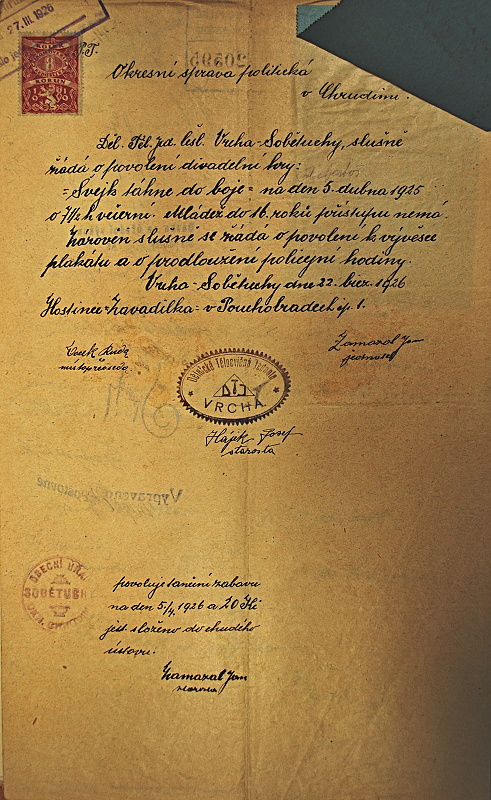 27.III.1926
KORUN
8
KORUN
19 19
P.T.
20595
Okresní správa politická
v Chrudimi.
Děl. Těl. jed. čsl. Vrcha-Sobětuchy, slušně
žádá o povolení divadelní hry:
= Švejk táhne do boje = na den 5. dubna 1925
o 7 1/2 h večerní. Mládež do 16. roků přístupu nemá.
Zároveň slušně se žádá o povolení k vývěsce
plakátu a o prodloužení policejní hodiny.
Vrcha-Sobětuchy dne 22. břez. 1926
Hostinec = Zavadilka = v Pouchobradech čp. 1.
místopředseda
Zamazal Jan
jednatel
Dělnická Tělocvičná Jednota
DTJ
VRCHA
Hájek Josef
starosta
Vypraveno
OBECNÍ ÚŘAD
SOBĚTUCH
povoluje taneční zábavu
na den 5/4 1926 a 20 Kč
jest složeno do chudého
ústavu.
Zamazal Jan
starosta